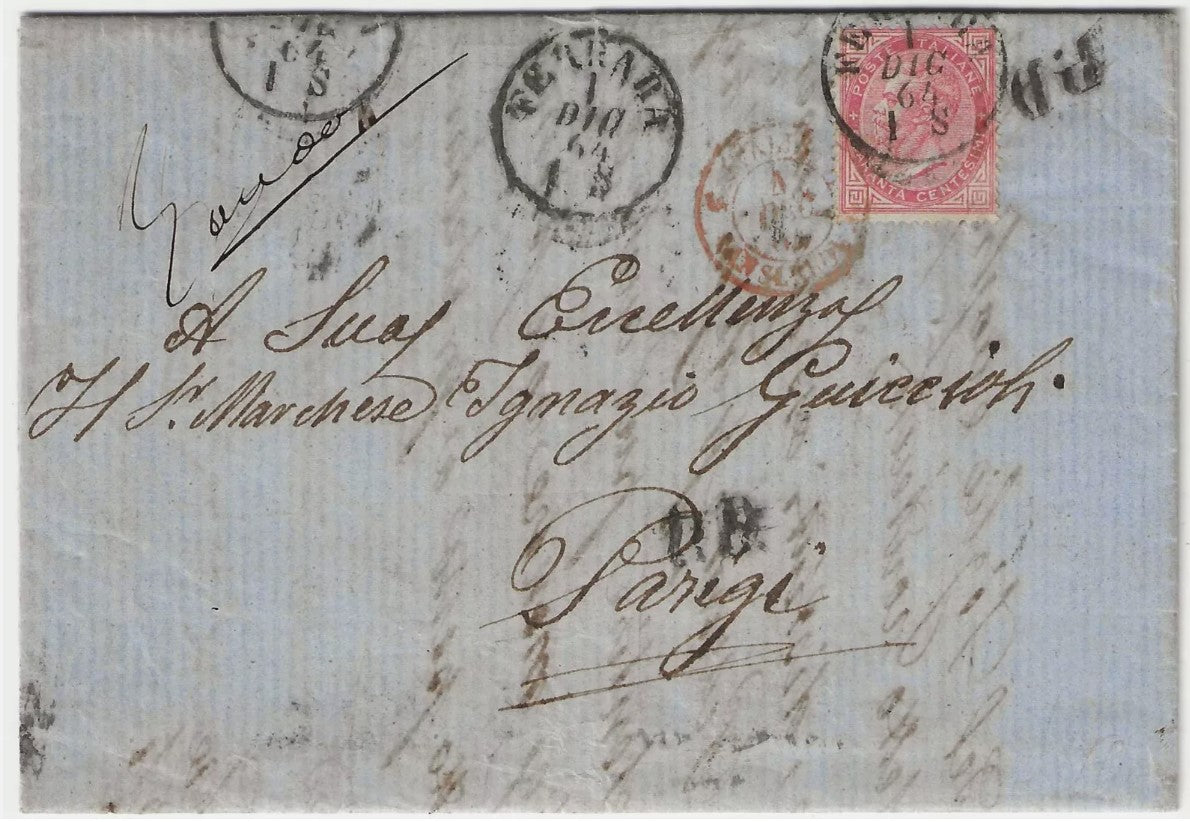 FERRARA
1
DIC
64
1 S
1
DIC
64
1 S
POSTE ITALIANE
QUARANTA CENTESIMI
P.D.
64
1 S
A Sua Eccellenza
Il Sr. Marchese Ignazio Guiccioli.
P.D.
Parigi